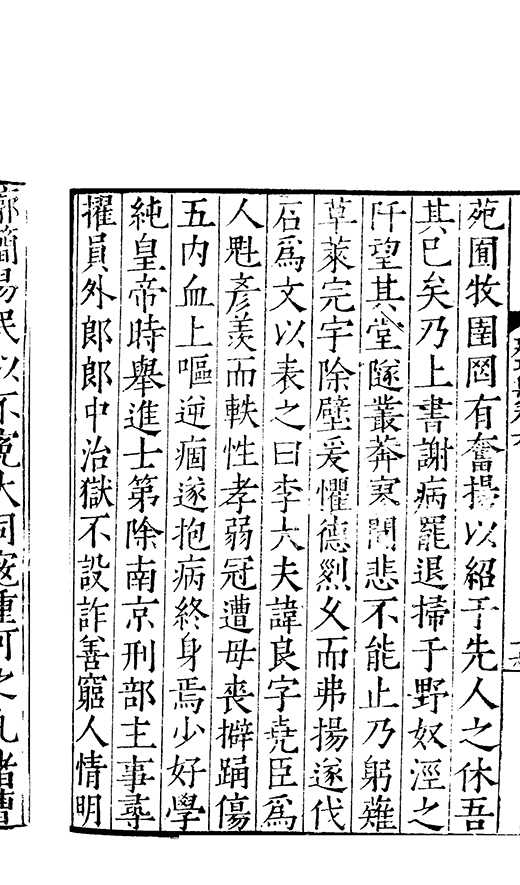 苑囿牧圉罔有奮揚以紹于先人之休吾
其已矣乃上書謝病罷退掃于野奴涇之
阡望其堂隧叢莽寥闃悲不能止乃躬薙
草萊完宇除壁爰懼德烈父而弗揚遂伐
石爲文以表之曰李大夫諱良字堯臣爲
人魁彥羡而軼性孝弱冠遭母喪擗踊傷
五内血上嘔逆痼遂抱病終身焉少好學
純皇帝時舉進士第除南京刑部主事尋
擢員外郎郎中治獄不設詐善窮人情明